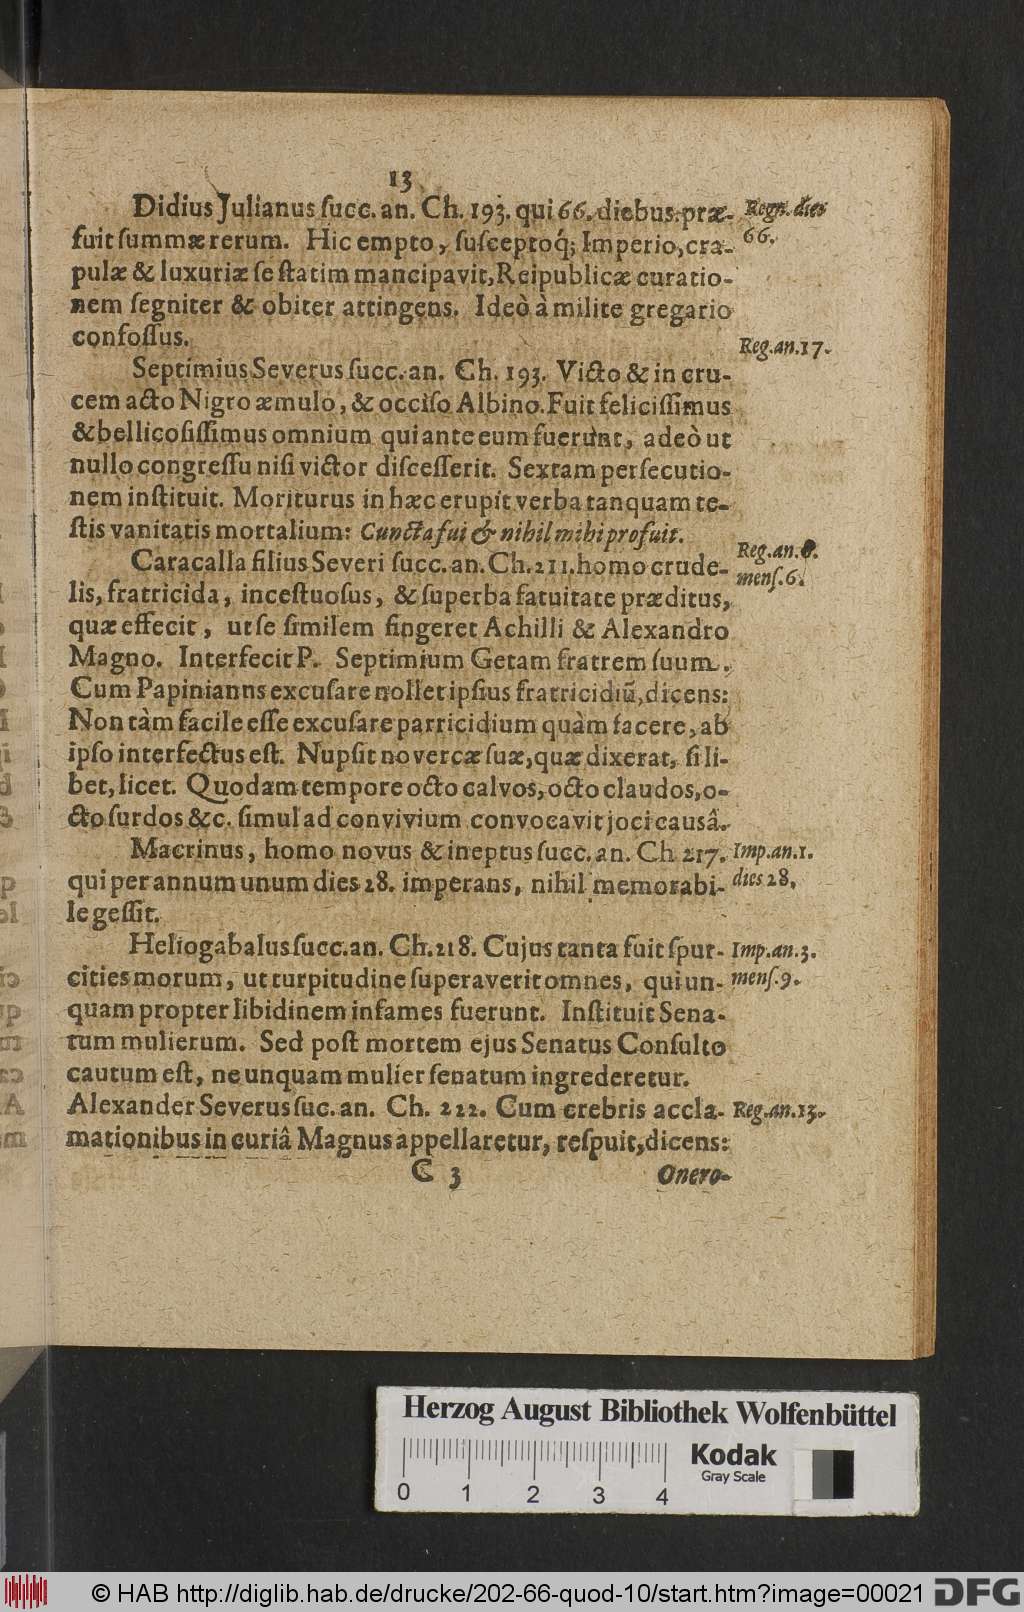 13
Didius Julianus succ. an. Ch. 193. qui 66. diebus præ- Regn. dies
fuit summæ rerum. Hic empto, susceptoq́; Imperio, cra- 66.
pulæ & luxuriæ se statim mancipavit, Reipublicæ curatio-
nem segniter & obiter attingens. Ideò à milite gregario
confossus.
Septimius Severus succ. an. Ch. 193. Victo & in cru- Reg. an. 17.
cem acto Nigro æmulo, & occiso Albino. Fuit felicissimus
& bellicosissimus omnium qui ante eum fuerunt, adeò ut
nullo congressu nisi victor discesserit. Sextam persecutio-
nem instituit. Moriturus in hæc erupit verba tanquam te-
stis vanitatis mortalium: Cuncta fui & nihil mihi profuit.
Caracalla filius Severi succ. an. Ch. 211. homo crude- Reg. an. 6.
lis, fratricida, incestuosus, & superba fatuitate præditus, mens. 6.
quæ effecit, ut se similem fingeret Achilli & Alexandro
Magno. Interfecit P. Septimium Getam fratrem suum.
Cum Papinianns excusare nollet ipsius fratricidiũ, dicens:
Non tàm facile esse excusare parricidium quàm facere, ab
ipso interfectus est. Nupsit novercæ suæ, quæ dixerat, si li-
bet, licet. Quodam tempore octo calvos, octo claudos, o-
cto surdos &c. simul ad convivium convocavit joci causâ.
Macrinus, homo novus & ineptus succ. an. Ch 217. Imp. an. 1.
qui per annum unum dies 28. imperans, nihil memorabi- dies 28.
le gessit.
Heliogabalus succ. an. Ch. 218. Cujus tanta fuit spur- Imp. an. 3.
cities morum, ut turpitudine superaverit omnes, qui un- mens. 9.
quam propter libidinem infames fuerunt. Instituit Sena-
tum mulierum. Sed post mortem ejus Senatus Consulto
cautum est, ne unquam mulier senatum ingrederetur.
Alexander Severus suc. an. Ch. 222. Cum crebris accla- Reg. an. 13.
mationibus in curiâ Magnus appellaretur, respuit, dicens:
C 3 Onero-
Herzog August Bibliothek Wolfenbüttel
Kodak
Gray Scale
0 1 2 3 4
© HAB http://diglib.hab.de/drucke/202-66-quod-10/start.htm?image=00021
DFG